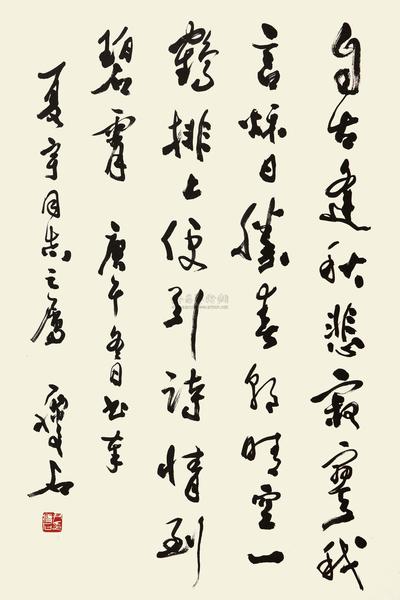 自古逢秋悲寂寥我
言秋日勝春朝晴空一
鶴排上便引詩情到
碧霄 庚午冬日书奉
夏宇同志之属
石